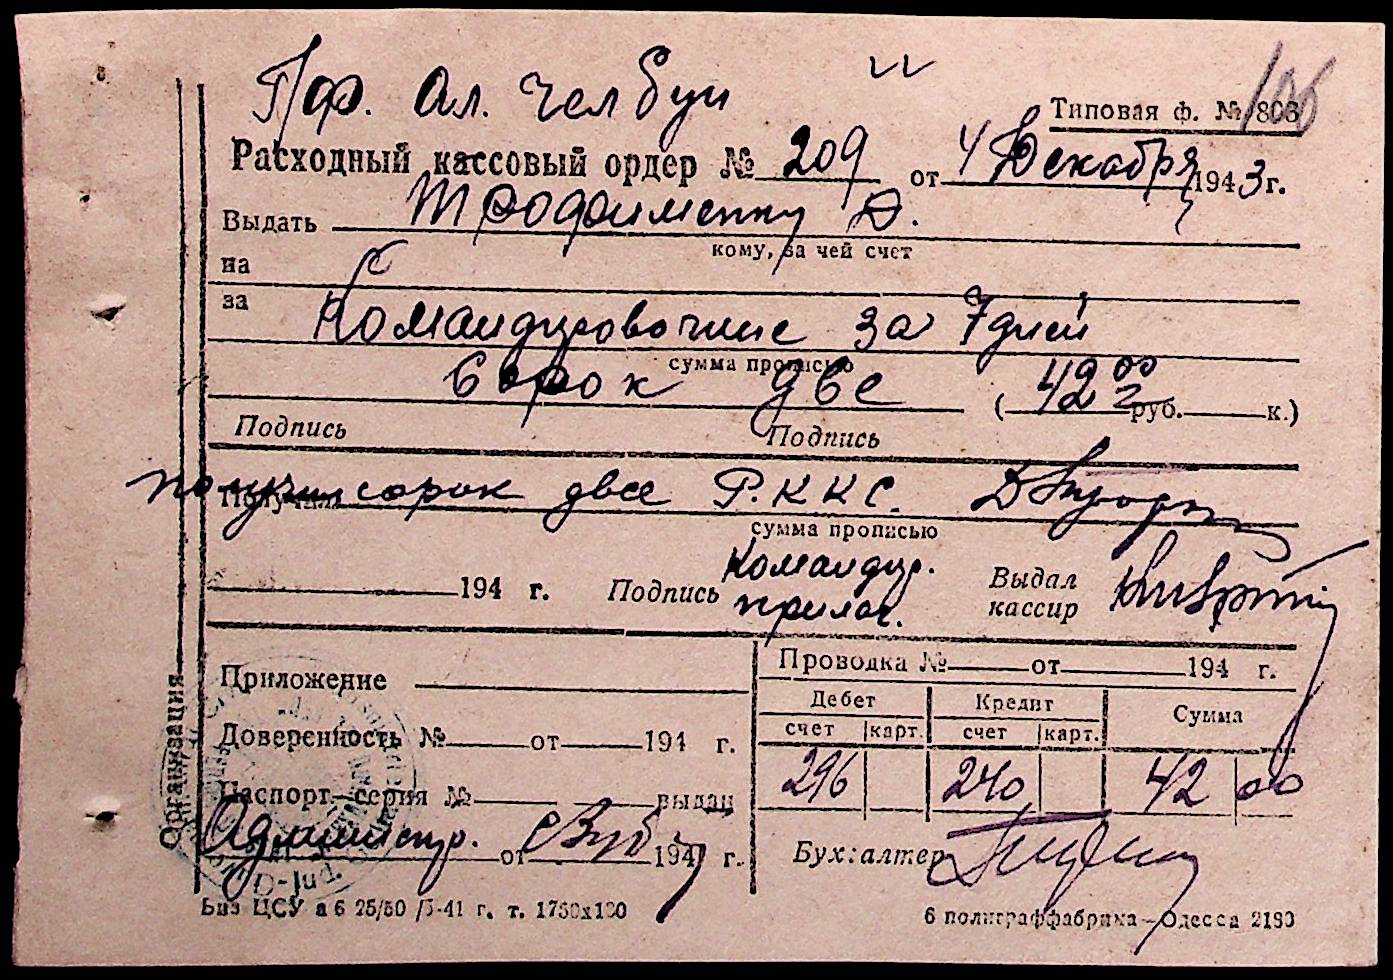 Прф. Ал. Челбуй
106
Типовая ф. № 803
Расходный кассовый ордер № 209 от 4 Декабря 1943 г.
Выдать Трофименку Д.
кому, за чей счет
на
за Командировочние за 7 дней
сумма прописью
Сорок две (42 00 руб. к.)
Подпись Подпись
Получил получил сорок двее Р.ККС.
сумма прописью
194 г. Подпись Командир. прилаг. Выдал кассир
Организация
Приложение
Доверенность № от 194 г.
Паспорт—серия № выдан
Администр. от 194 г.
D-Jud.
Проводка № от 194 г.
Дебет Кредит Сумма
счет карт. счет карт.
296 240 42 00
Бухгалтер
Биз ЦСУ а 6 25/50 /5-41 г. т. 1750х100
6 полиграффабрика—Одесса 2180